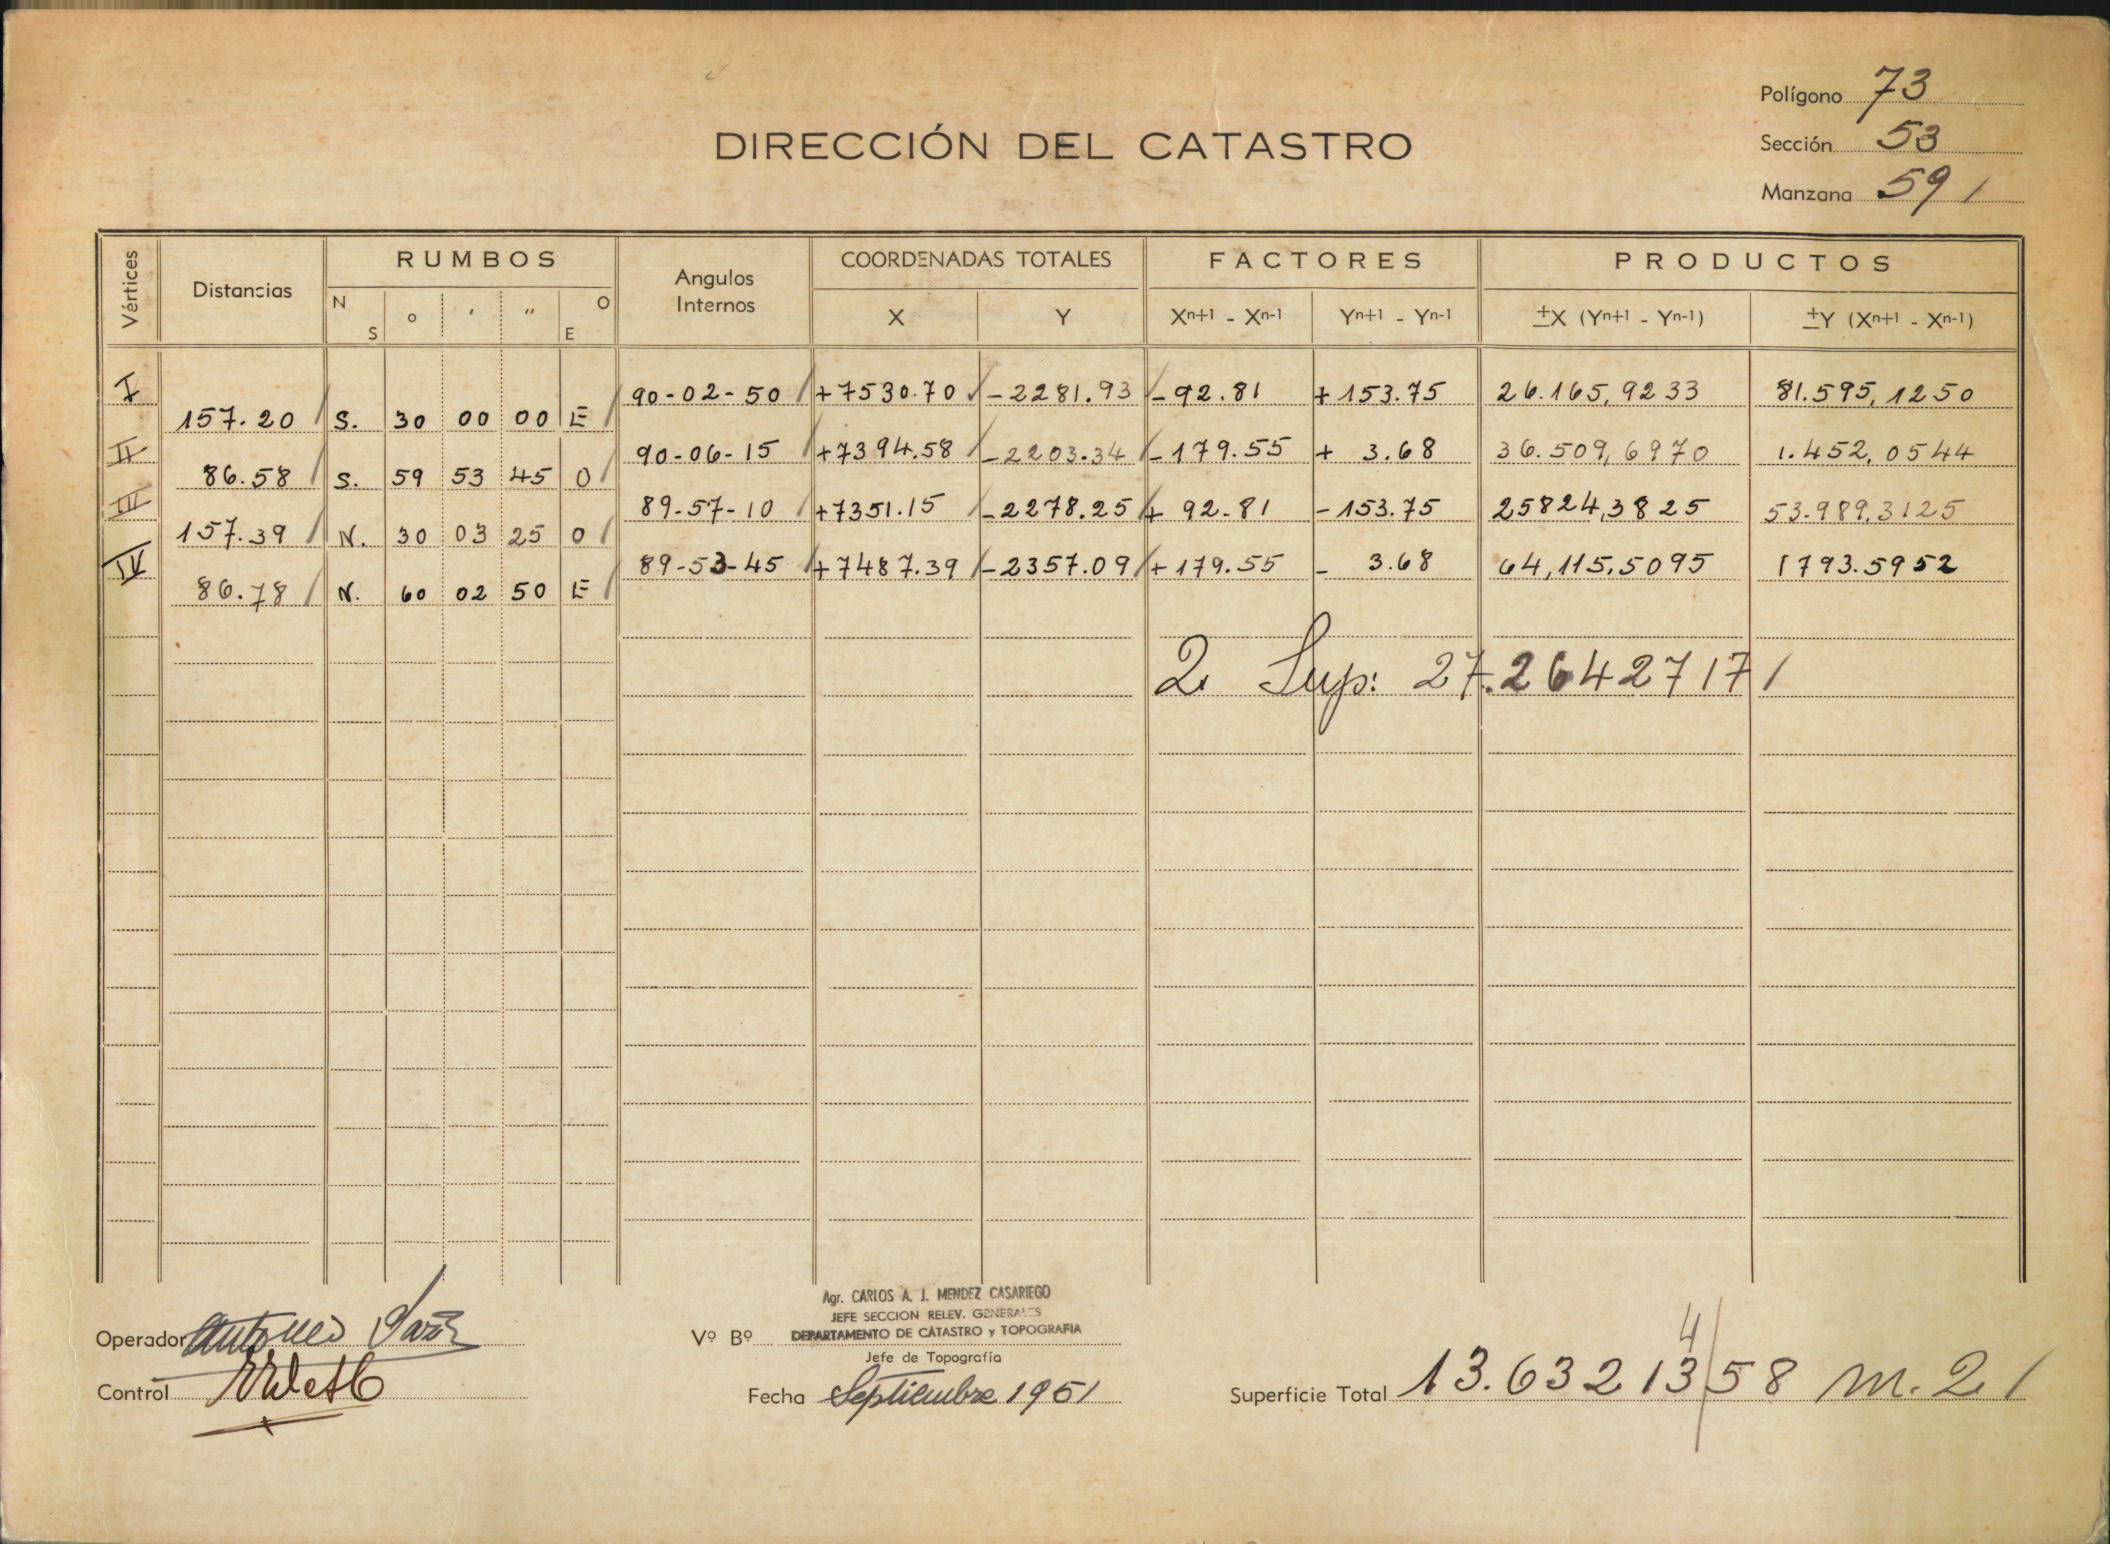 Polígono 73
DIRECCIÓN DEL CATASTRO
Sección 53
Manzana 591
Vértices Distancias RUMBOS Angulos Internos COORDENADAS TOTALES FACTORES PRODUCTOS
N S o ' " O E X Y Xn+1 - Xn-1 Yn+1 - Yn-1 ±X (Yn+1 - Yn-1) ±Y (Xn+1 - Xn-1)
I 90-02-50 +7530.70 -2281.93 -92.81 +153.75 26.165,9233 81.595,1250
157.20 S. 30 00 00 E
II 90-06-15 +7394.58 -2203.34 -179.55 + 3.68 36.509,6970 1.452,0544
86.58 S. 59 53 45 O
III 89-57-10 +7351.15 -2278.25 + 92.81 -153.75 25824,3825 53.989,3125
157.39 N. 30 03 25 O
IV 89-53-45 +7487.39 -2357.09 +179.55 - 3.68 64,115,5095 1793.5952
86.78 N. 60 02 50 E
2 Sup: 27.2642717
Agr. CARLOS A. J. MENDEZ CASARIEGO
JEFE SECCION RELEV. GENERALES
Operador Antonio Vº Bº DEPARTAMENTO DE CATASTRO y TOPOGRAFIA
Jefe de Topografía
Control Fecha Septiembre 1951 Superficie Total 13.632 13 58 m. 2
4